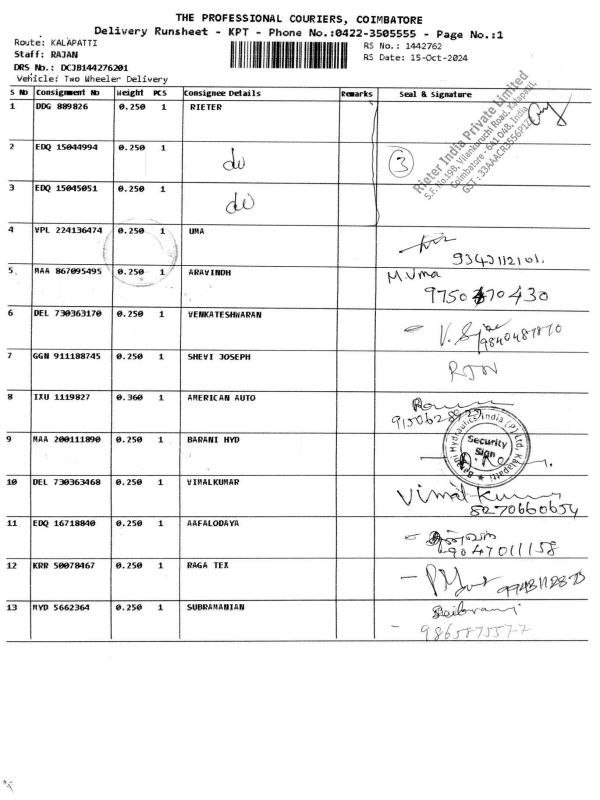 THE PROFESSIONAL COURIERS, COIMBATORE
Delivery Runsheet - KPT - Phone No.:0422-3505555 - Page No.:1
Route: KALAPATTI
Staff: RAJAN
DRS No.: DCJB144276201
Vehicle: Two Wheeler Delivery
RS No.: 1442762
RS Date: 15-Oct-2024
S No Consignment No Weight PCS Consignee Details Remarks Seal & Signature
1 DDG 889826 0.250 1 RIETER
Rieter India Private Limited
S.F. No.198, Vilankurichi Road, Kalapatti,
Coimbatore - 641 048, India
2 EDQ 15044994 0.250 1 3
3 EDQ 15045051 0.250 1
4 VPL 224136474 0.250 1 UMA
9342112101.
5 MAA 867095495 0.250 1 ARAVINDH M.Uma
6 DEL 730363170 0.250 1 VENKATESHWARAN
7 GGN 911188745 0.250 1 SHEVI JOSEPH
8 IXU 1119827 0.360 1 AMERICAN AUTO
9 MAA 200111890 0.250 1 BARANI HYD
Barani Hydraulics India (P) Ltd, Kalapatti ★
Security
Sign
10 DEL 730363468 0.250 1 VIMALKUMAR
8270660654
11 EDQ 16718840 0.250 1 AAFALODAYA
9047011158
12 KRR 50078467 0.250 1 RAGA TEX
13 MYD 5662364 0.250 1 SUBRAMANIAN
9865875577